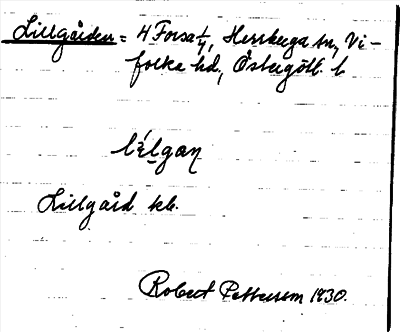 Lillgården = 4 Forsa 1/4, Herrberga sn, Vi-
folka hd, Östergötl. l.
Lillgård kb.
Robert Pettersson 1930.